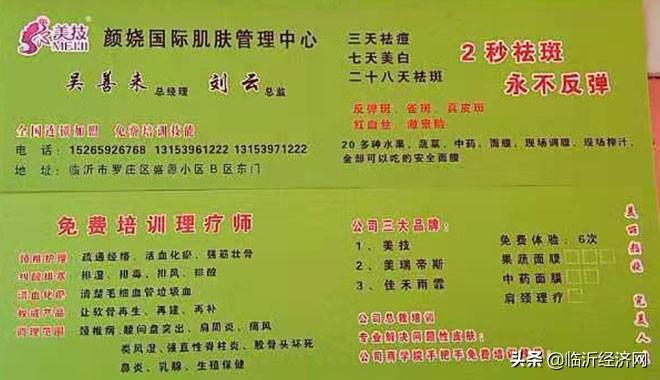 美技
MEIJI
颜娆国际肌肤管理中心
吴善来 总经理 刘云 总监
全国连锁加盟 免费培训技能
电话：15265926768 13153961222 13153971222
地址：临沂市罗庄区盛源小区B区东门
三天祛痘
七天美白
二十八天祛斑
2秒祛斑
永不反弹
反弹斑、雀斑、真皮斑
红血丝、激素脸
20多种水果、蔬菜、中药、面膜，现场调膜、现场榨汁，
全部可以吃的安全面膜
免费培训理疗师
颈椎护理：疏通经络、活血化瘀、强筋壮骨
纠酸排寒：排湿、排毒、排风、排酸
清血化瘀：清楚毛细血管垃圾血
权威产品：让软骨再生、再建、再补
调理范围：颈椎病、腰间盘突出、肩周炎、痛风
类风湿、强直性脊柱炎、股骨头坏死
鼻炎、乳腺、生殖保健
公司三大品牌：
1、美技
2、美瑞帝斯
3、佳禾雨霏
免费体验：6次
果蔬面膜□□□
中药面膜□□
肩颈理疗□
公司总裁培训
专业解决问题性皮肤；
公司商学院手把手免费培训
美丽指技
完美人
头条@临沂经济网